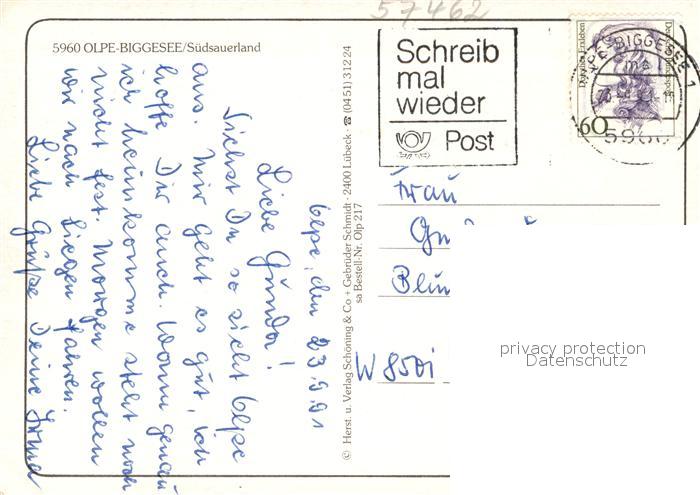 57462
5960 OLPE-BIGGESEE/Südsauerland
Schreib
mal
wieder
Post
60
Dorothea Erxleben
Deutsche Bundespost
OLPE-BIGGESEE 1
5960
Olpe, den 23.9.91
Liebe Gunda!
Siehst Du so sieht Olpe
aus. Mir geht es gut, ich
hoffe Dir auch. Wann genau
ich heimkomme steht noch
nicht fest. Morgen wollen
wir nach Siegen fahren.
Liebe Grüße Deine Irma
© Herst. u. Verlag Schöning & Co + Gebrüder Schmidt · 2400 Lübeck · ☎ (0451) 31224
sa Bestell-Nr. Olp 217
Frau
W 850i
privacy protection
Datenschutz